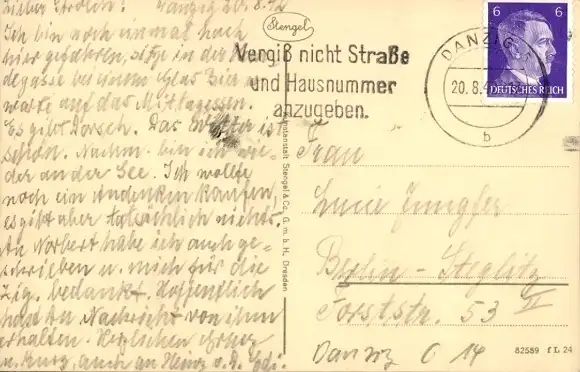 Lieber Strolch! Danzig 20.8.42
Ich bin noch einmal nach
hier gefahren, sitze in der
degasse bei einem Glas Bier u.
warte auf das Mittagessen.
Es gibt Dorsch. Das Wetter ist
schön. Nachm. bin ich wie-
der an der See. Ich wollte
noch ein Andenken kaufen,
es gibt aber tatsächlich nichts.
An Norbert habe ich auch ge-
schrieben u. mich für die
Zig. bedankt. Hoffentlich
hast du Nachricht von ihm
erhalten. Herzlichen Gruß
u. Kuss, auch an Heinz v. D. Edi.
Stengel
Vergiß nicht Straße
und Hausnummer
anzugeben.
DANZIG 5
20.8.4
b
6 6
DEUTSCHES REICH
Kunstanstalt Stengel & Co. G. m. b. H., Dresden
Frau
Lucie Jungfer
Berlin - Steglitz
Forststr. 53 II
Danzig C 14
82589 f L 24